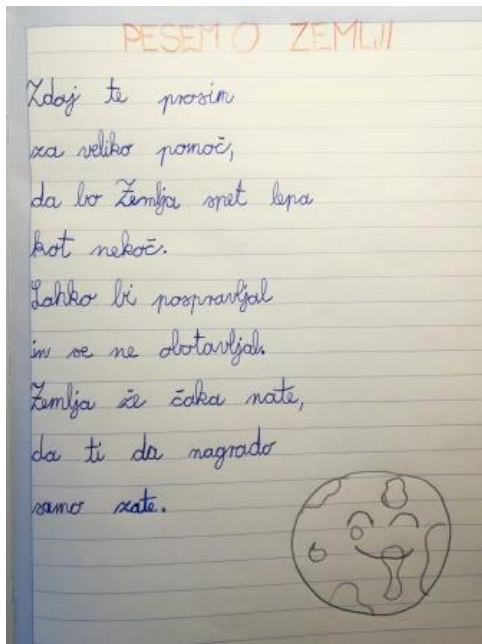 PESEM O ZEMLJI
Zdaj te prosim
za veliko pomoč,
da bo Zemlja spet lepa
kot nekoč.
Lahko bi pospravljal
in se ne obotavljal.
Zemlja že čaka nate,
da ti da nagrado
samo zate.